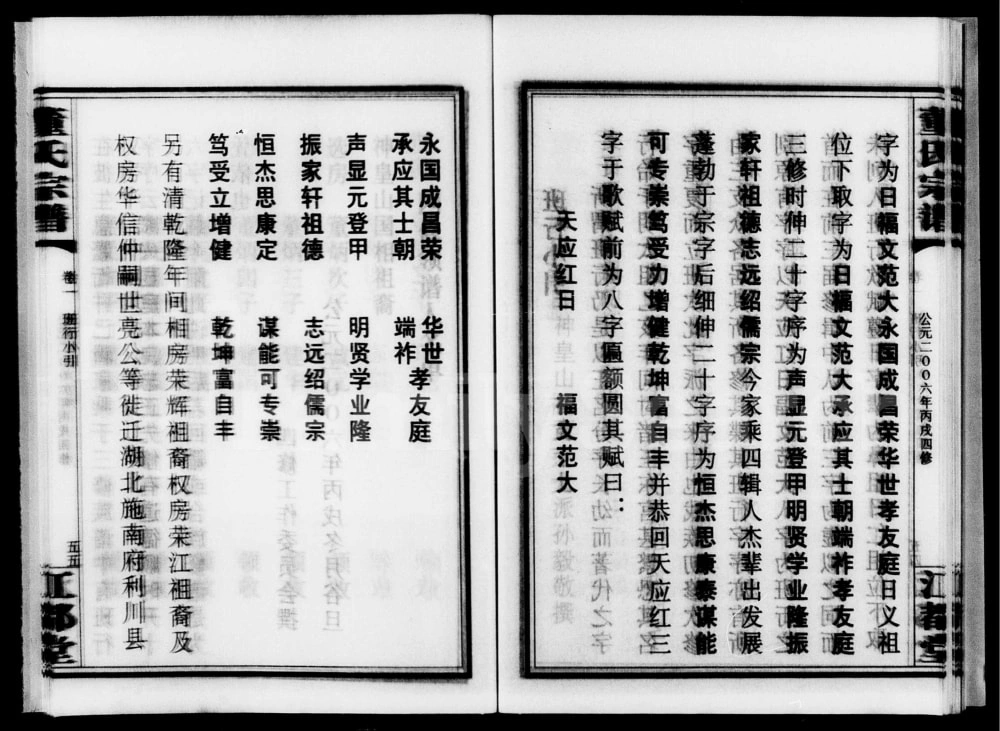 董氏宗谱
公元二00六年丙戌四修
江都堂
字为日福文范大永国成昌荣华世孝友庭日义祖
位下取字为日福文范大承应其士朝端祚孝友庭
三修时伸二十字序为声显元登甲明贤学业隆振
家轩祖德志远绍儒宗今家乘四辑人杰辈出发展
蓬勃于宗字后细伸二十字序为恒杰思康泰谋能
可专崇笃受力增健乾坤富自丰并恭回天应红三
字于歌赋前为八字匾额圆其赋曰：
天应红日 福文范大
永国成昌荣 华世孝友庭
承应其士朝 端祚
声显元登甲 明贤学业隆
振家轩祖德 志远绍儒宗
恒杰思康定 谋能可专崇
笃受立增健 乾坤富自丰
另有清乾隆年间相房荣辉祖裔权房荣江祖裔及
权房华信仲嗣世亮公等徙迁湖北施南府利川县
董氏宗谱
卷一 班行小引
五五
江都堂